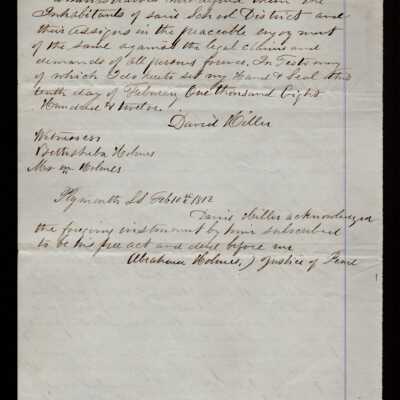 Inhabitants of said School District and
their assigns in the peaceable enjoyment
of the same against the legal claims and
demands of all persons forever. In Testimony
of which I do hereto set my Hand & Seal this
tenth day of February One thousand Eight
Hundred & twelve.
David Hiller
Witnesses
Bethsheba Holmes
Holmes
Plymouth Ss Feb 10th 1812
David Hiller acknowledged
the forgoing instrument by him subscribed
to be his free act and deed before me
Abraham Holmes, ) Justice of Peace